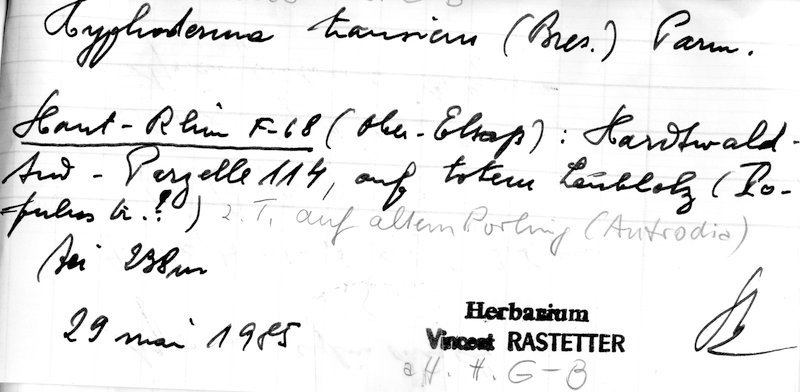 Hyphoderma transiens (Bres.) Parm.
Haut-Rhin F-68 (Ober-Elsaß): Hardtwald-
Süd - Parzelle 114, auf totem Laubholz (Po-
=pulus tr.?) z.T. auf altem Porling (Antrodia)
bei 238m
29 mai 1985
Herbarium
Vincent RASTETTER
a H. H. G-B